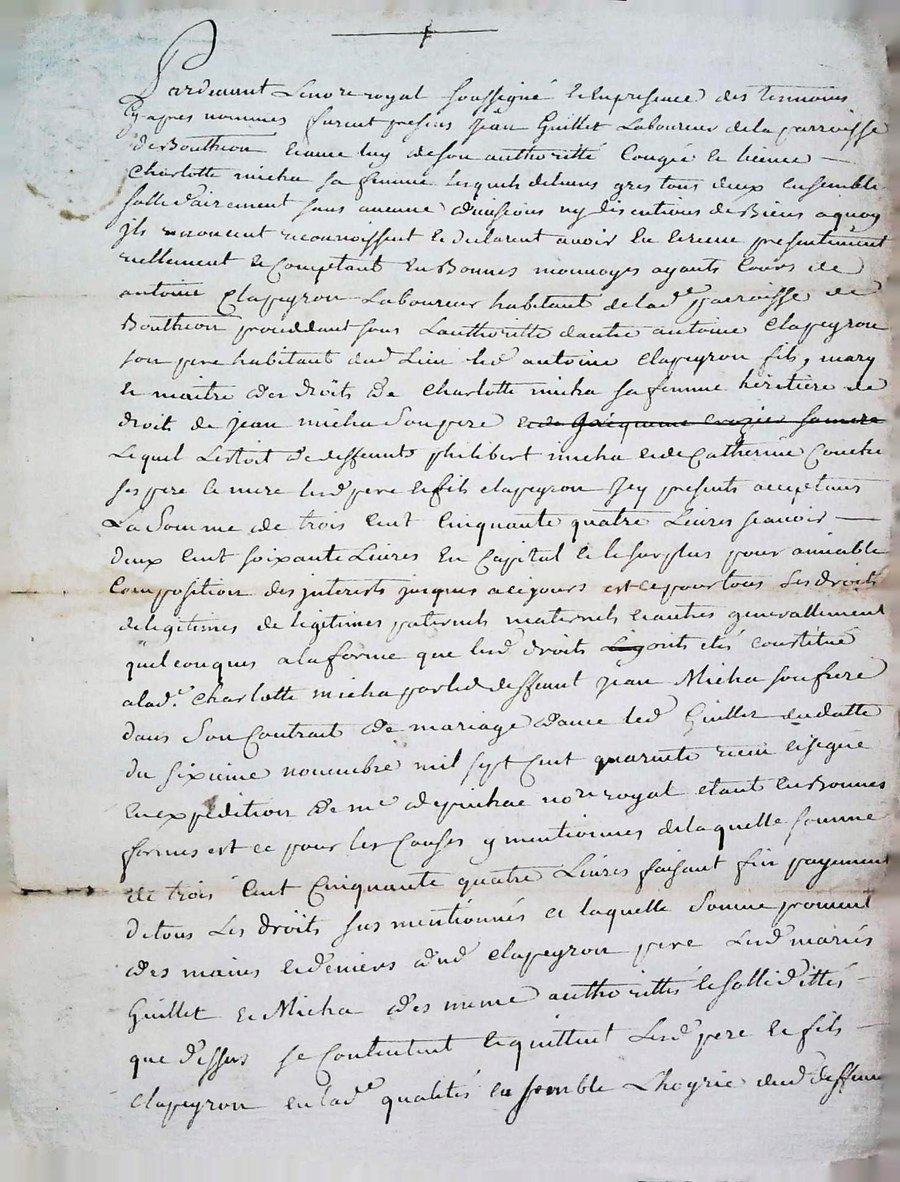 Pardevant Lenore royal soussigné et Enpresence des temoins
Cy apres nommes furent presens Jean Guillet Laboureur dela parroisse
de Bouthéon et avec luy de son authoritté Congié et licence
Charlotte micha sa femme lesquels de leurs gres tous deux ensemble
sollidairement sans aucune divisions ny discutions de Biens a quoy
Jls renoncent reconnoissent et declarent avoir Eu et receu presentement
reellement et Comptant En Bonnes monnoyes ayants Cours de
antoine Clapeyron Laboureur habitant de lade parroisse de
Bouthéon proceddant sous Lauthoritté dautre antoine Clapeyron
son pere habitant dud Lieu led antoine Clapeyron fils, mary
et maitre des droits de Charlotte micha sa femme héritière de
droit de jean micha Son pere et de Jacquème crozier sa mere
Lequel Lestoit de deffunts philibert micha et de Catherine Couche
ses pere et mere lesd pere et fils clapeyron Jcy presents acceptans
La Somme de trois Cent Cinquante quatre Livres scavoir
deux Cent soixante Livres En Capital et le surplus pour amiable
Composition des jnterests jusques a cejours est ce pour tous Les droits
delegitimes de legitimes paternels maternels et autres generallement
quelconques alaforme que lesd droits ont étés constitué
alade. Charlotte micha par led deffunt jean Micha son frere
dans Son Contrat de mariage avec led Guillet en datte
du sixieme novembre mil sept Cent quarante receu et signé
En expédition de me depinhac nore royal etant En Bonnes
formes est ce pour les Causes y mentionnes de laquelle somme
de trois Cent Cinquante quatre Livres faisant fin payement
de tous Les droits sus mentionnés et laquelle Somme provient
des mains et deniers dud clapeyron pere Lesd mariés
Guillet et Micha des meme authorittés et sollidittés
que dessus se Contentent et quittent Lesd pere et fils
Clapeyron en lade qualités ensemble Lhoyrie dud deffunt